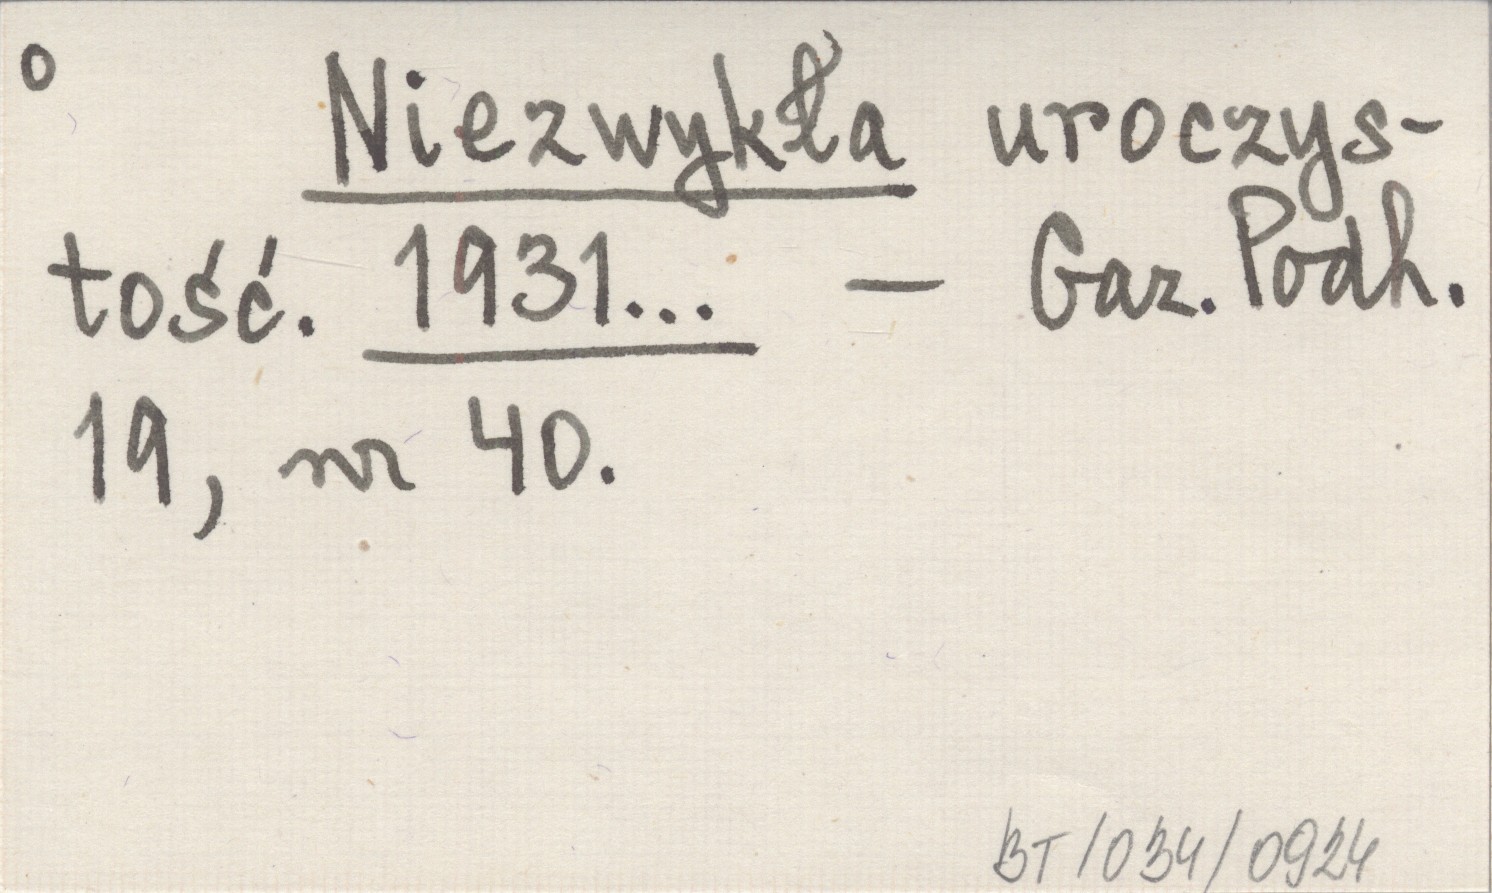 o Niezwykła uroczys-
tość. 1931... — Gaz. Podh.
19, nr 40.
BT/034/0924